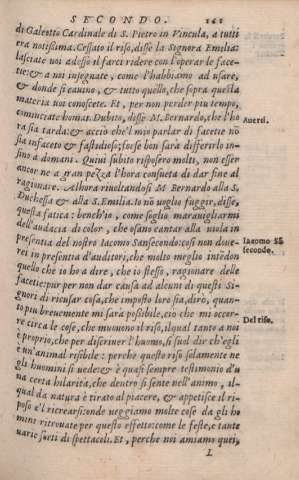 SECONDO. 161
di Galeotto Cardinale di S. Pietro in Vincula, a tutti
era notissima. Cessato il riso, disse la Signora Emilia:
lasciate voi adesso il farci ridere con l'operar le face-
tie: & a noi insegnate, come l'habbiamo ad usare,
& donde si cavino, & tutto quello, che sopra questa
materia voi conoscete. Et, per non perder piu tempo,
cominciate homai. Dubito, disse M. Bernardo, che l'ho
ra sia tarda: & acciò che'l mio parlar di facetie nō
sia infaceto & fastidioso; forse bon sarà differirlo in-
fino a domani. Quivi subito risposero molti, non esser
ancor ne a gran pezza l'hora consueta di dar fine al
ragionare. Alhora rivoltandosi M Bernardo alla S.
Duchessa & alla S. Emilia. Io nō voglio fuggir, disse,
questa fatica: bench'io, come soglio maravigliarmi
dell'audacia di color, che osano cantar alla viola in
presentia del nostro Iacomo Sansecondo: così non dove-
rei in presentia d'auditori, che molto meglio intēdon
quello che io ho a dire, che io stesso, ragionare delle
facetie: pur per non dar causa ad alcuni di questi Si-
gnori di ricusar cosa, che imposto loro sia, dirò, quan-
to piu brevemente mi sarà possibile, ciò che mi occor-
re circa le cose, che muovono il riso, ilqual tanto a noi
è proprio, che per discriver l'huomo, si suol dir ch'egli
è un'animal risibile: perche questo riso solamente ne
gli huomini si vede: & è quasi sempre testimonio d'u
na certa hilarità, che dentro si sente nell'animo, il-
qual da natura è tirato al piacere, & appetisce il ri-
poso e'l ricrearsi: onde veggiamo molte cose da gli ho
mini ritrovate per questo effetto: come le feste, e tante
varie sorti di spettacoli. Et, perche noi amiamo quei,
L
Averti.
Iacomo Sā
secondo.
Del riso.